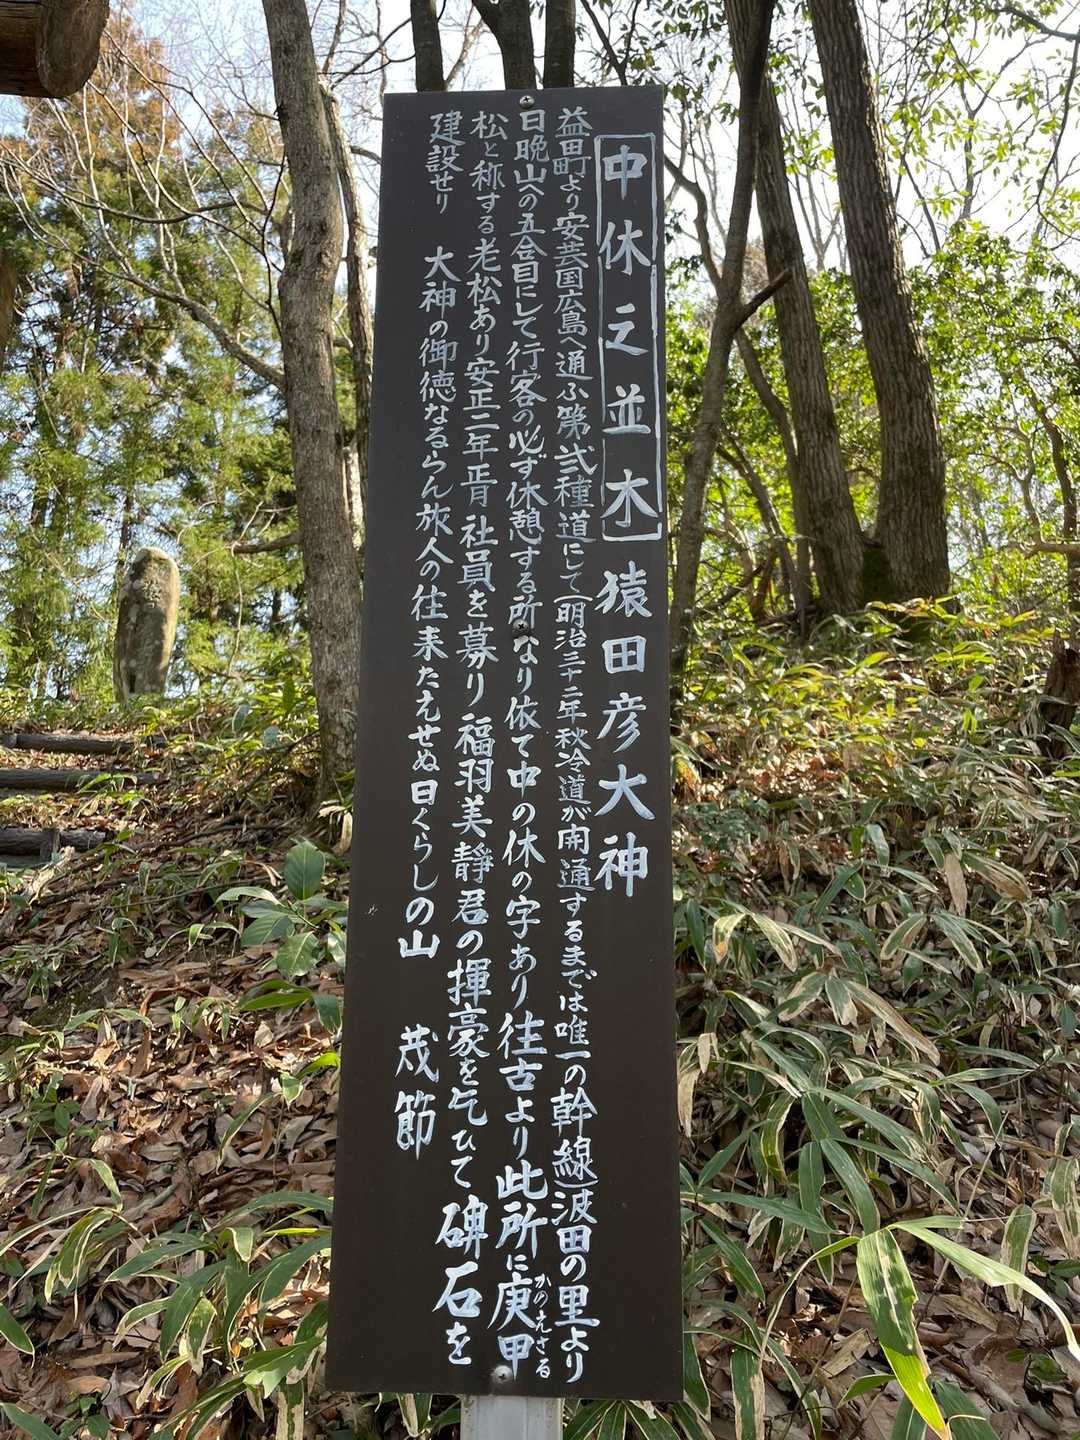 中休之並木 猿田彦大神
益田町より安芸国広島へ通ふ第弐種道にして(明治三十二年秋冷道が開通するまでは唯一の幹線)波田の里より
日晩山への五合目にして行客の必ず休憩する所なり依て中の休の字あり往古より此所に庚甲
かのえさる
松と称する老松あり安正二年正月社員を募り福羽美静君の揮豪を乞ひて碑石を
建設せり 大神の御徳なるらん旅人の往来たえせぬ日くらしの山 茂節